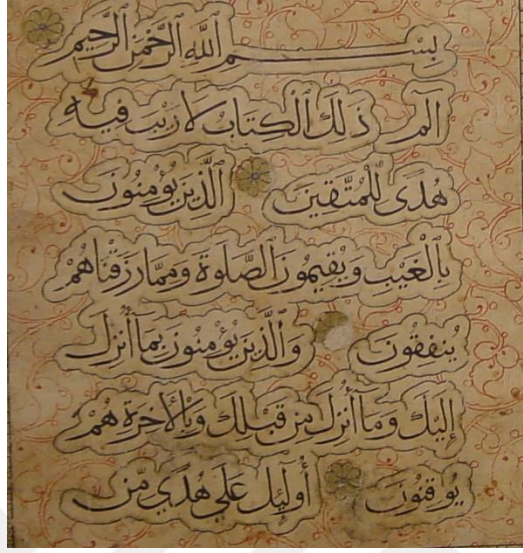 بِسْمِ ٱللَّهِ ٱلرَّحْمَٰنِ ٱلرَّحِيمِ
الٓمٓ ذَٰلِكَ ٱلْكِتَابُ لَا رَيْبَ فِيهِ
هُدًى لِّلْمُتَّقِينَ ٱلَّذِينَ يُؤْمِنُونَ
بِٱلْغَيْبِ وَيُقِيمُونَ ٱلصَّلَوٰةَ وَمِمَّا رَزَقْنَاهُمْ
يُنفِقُونَ وَٱلَّذِينَ يُؤْمِنُونَ بِمَآ أُنزِلَ
إِلَيْكَ وَمَآ أُنزِلَ مِن قَبْلِكَ وَبِٱلْأَخِرَةِ هُمْ
يُوقِنُونَ أُولَٰئِكَ عَلَىٰ هُدًى مِّن